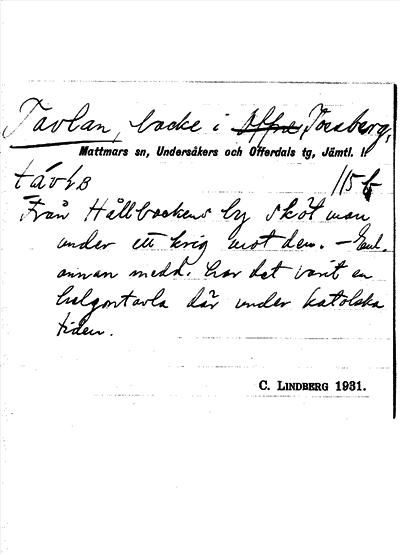 Tavlan, backe i Offne Torsberg,
Mattmars sn, Undersåkers och Offerdals tg, Jämtl. l.
115 b
Från Hållbackens by sköt man
under ett krig mot den. – Enl.
annan medd. har det varit en
helgontavla där under katolska
tiden.
C. LINDBERG 1931.